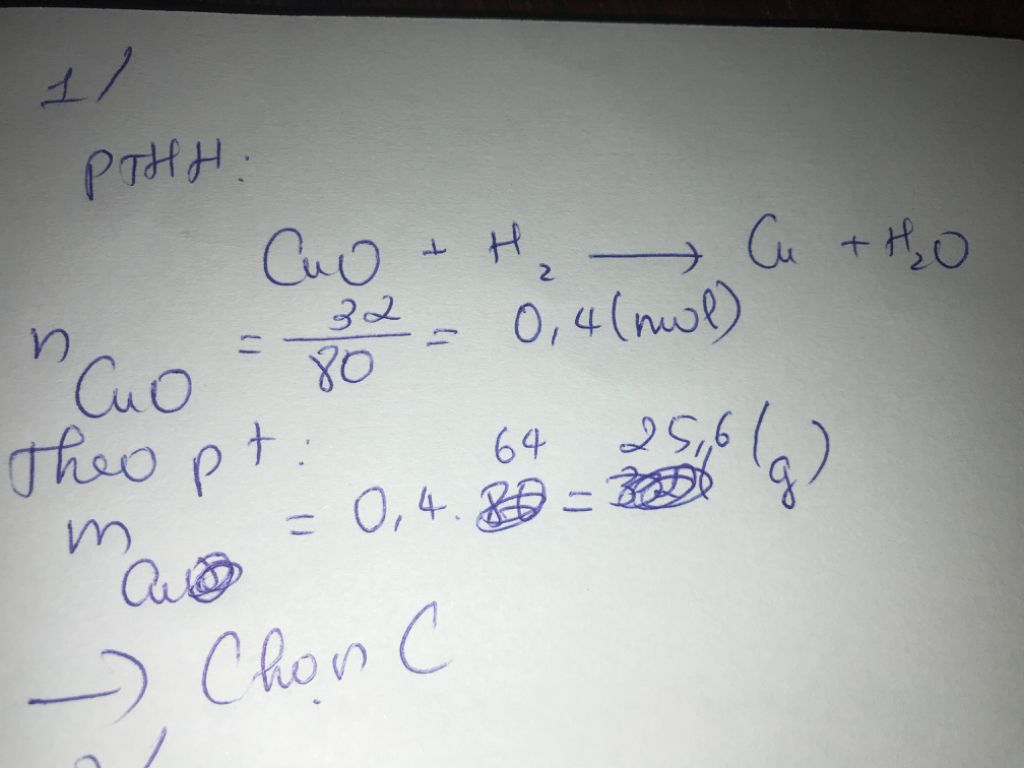 1/
PTHH:
CuO + H₂ ⟶ Cu + H₂O
n CuO = 32/80 = 0,4 (mol)
Theo pt:
m Cu = 0,4. 64 = 25,6 (g)
→ Chọn C